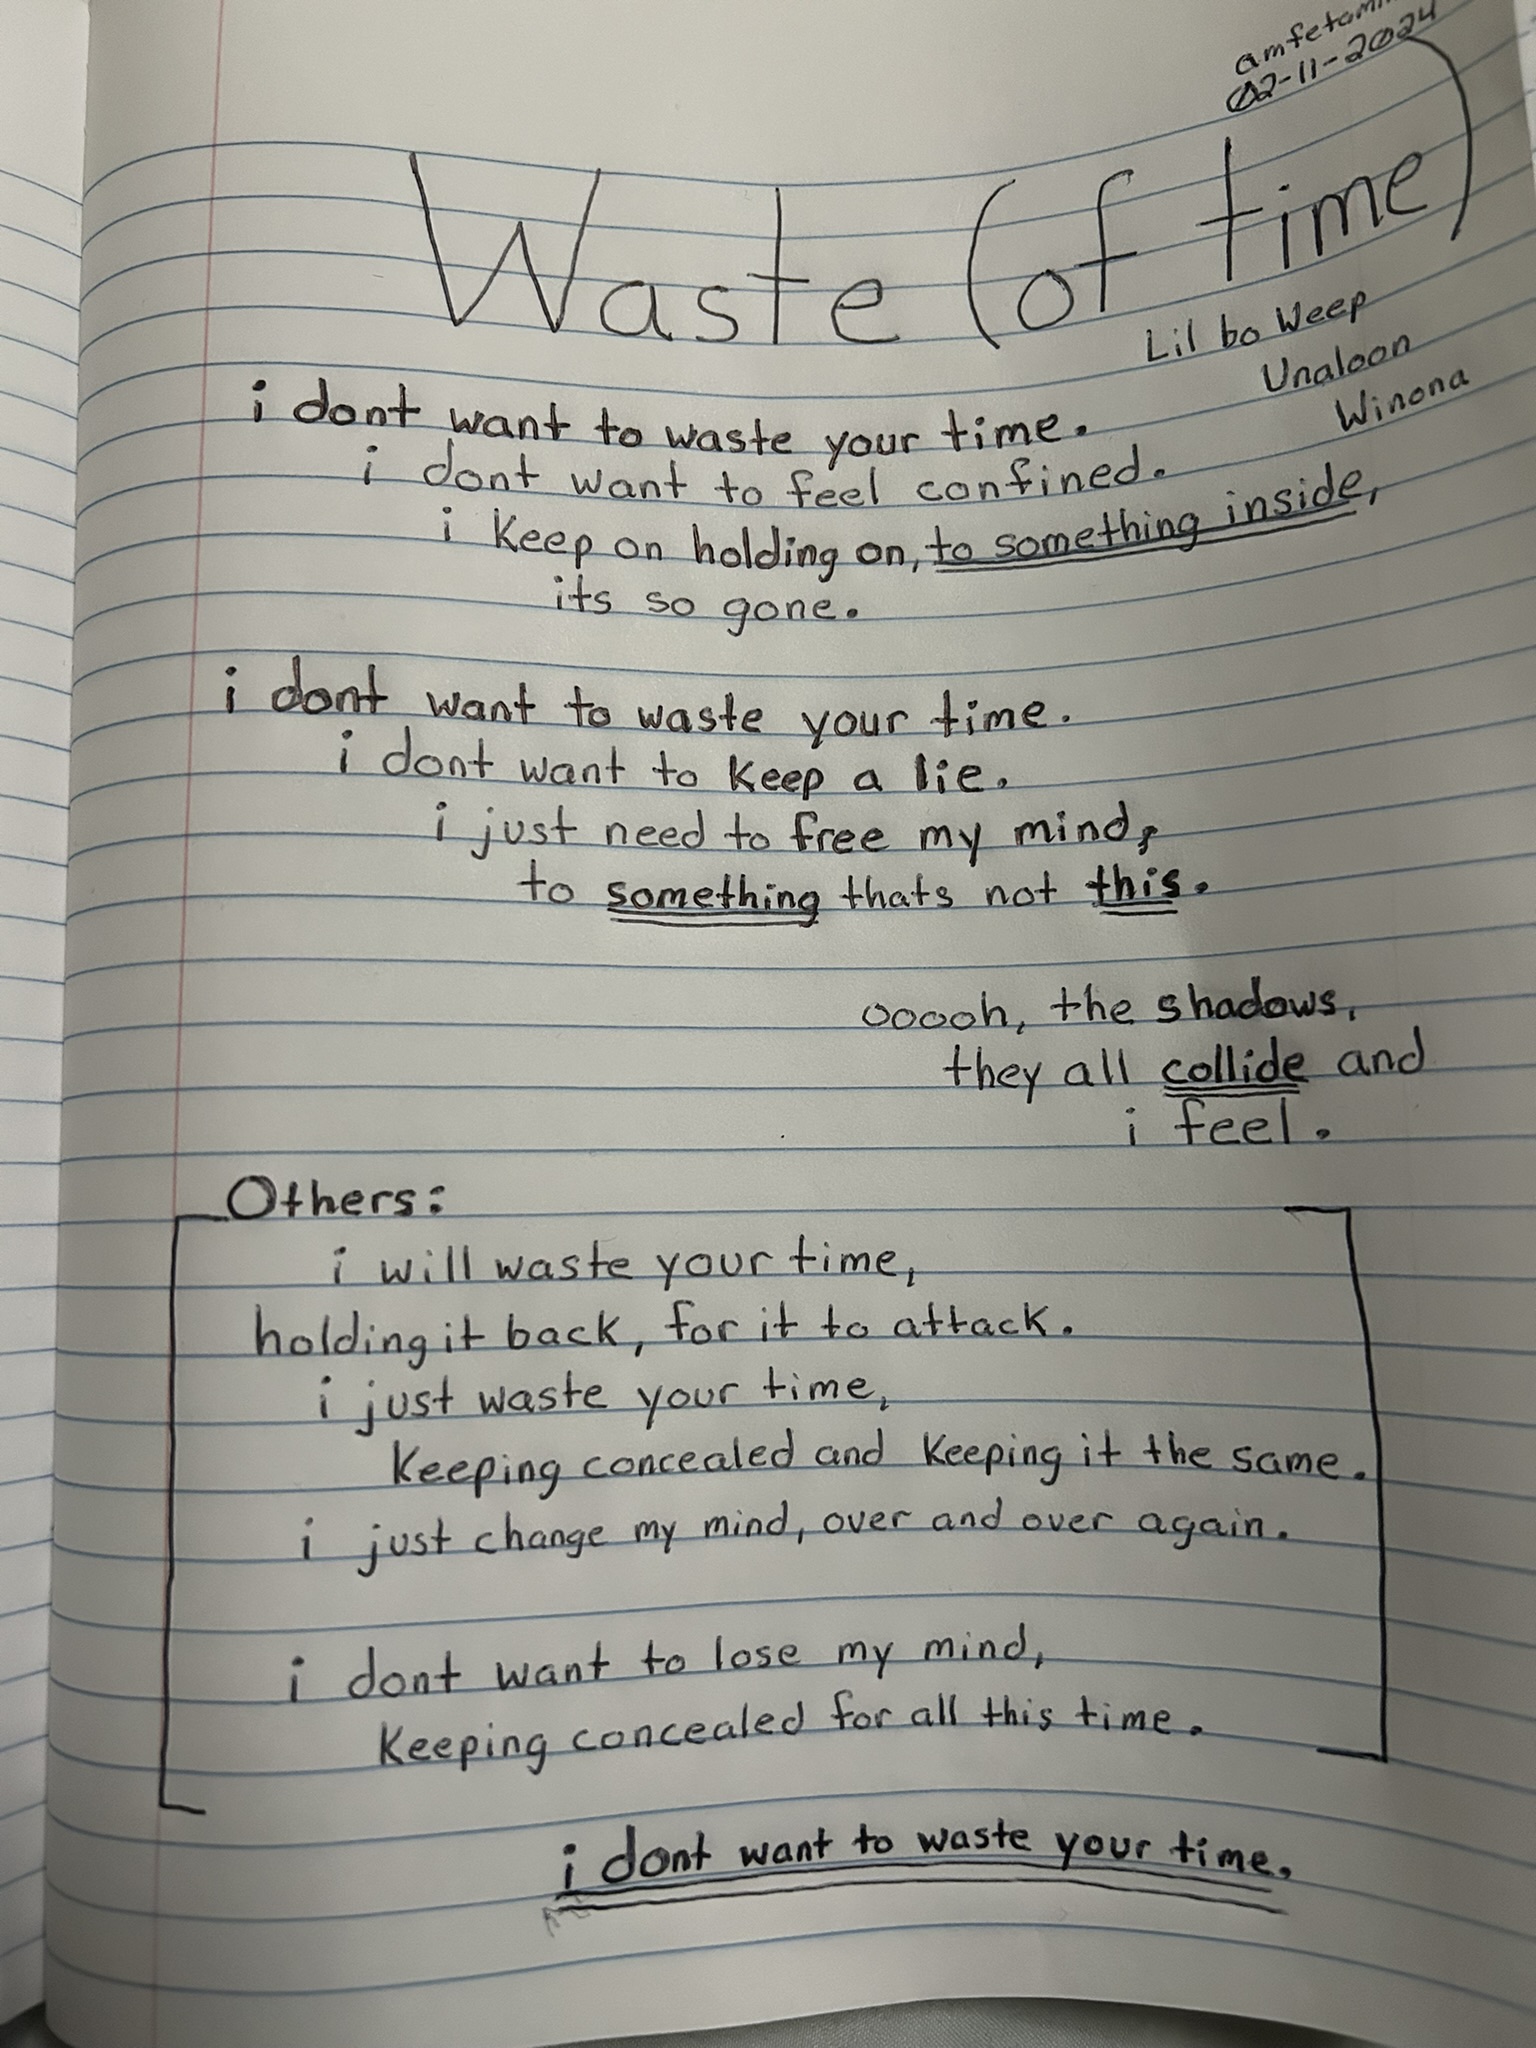 02-11-2024
Waste (of time)
Lil bo Weep
Unaloon
Winona
i dont want to waste your time.
i dont want to feel confined.
i keep on holding on, to something inside,
its so gone.
i dont want to waste your time.
i dont want to keep a lie.
i just need to free my mind,
to something thats not this.
ooooh, the shadows,
they all collide and
i feel.
Others:
i will waste your time,
holding it back, for it to attack.
i just waste your time,
Keeping concealed and Keeping it the same.
i just change my mind, over and over again.
i dont want to lose my mind,
Keeping concealed for all this time.
i dont want to waste your time.